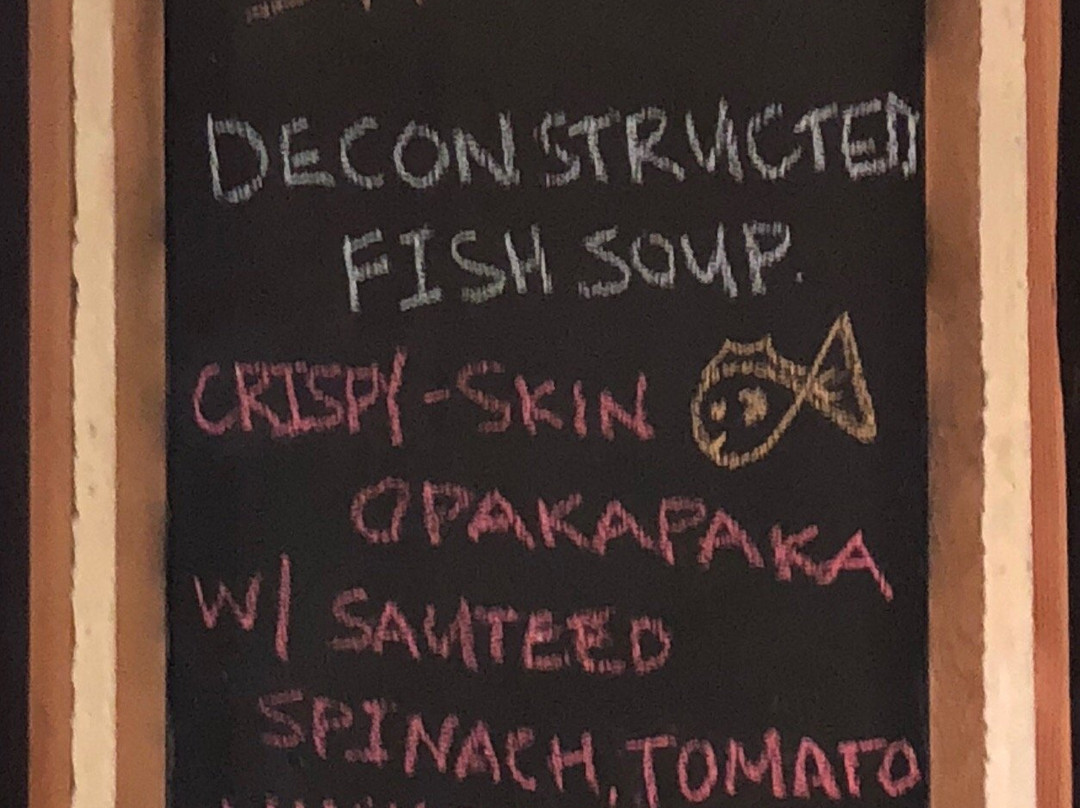 DECONSTRUCTED
FISH SOUP.
CRISPY-SKIN
OPAKAPAKA
W/ SAUTEED
SPINACH, TOMATO